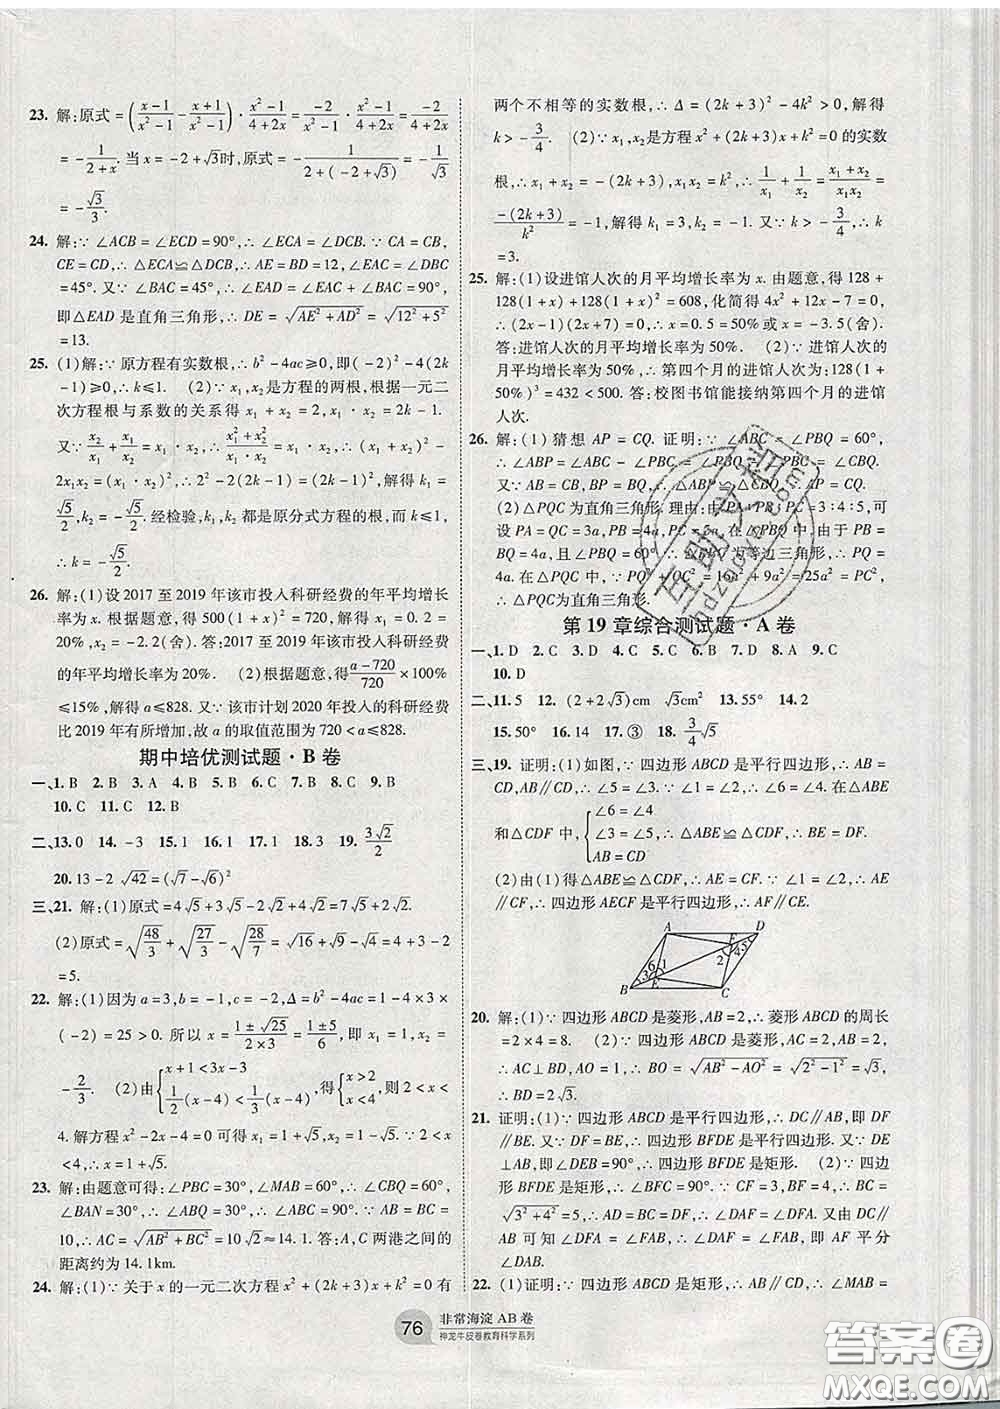 23. 解:原式=(x-1/x²-1 - x+1/x²-1)·x²-1/4+2x=-2/x²-1·x²-1/4+2x=-2/4+2x
=-1/2+x. 当x=-2+√3时,原式=-1/2+(-2+√3)=-1/√3
=-√3/3.
24. 解:∵∠ACB=∠ECD=90°,∴∠ECA=∠DCB.∵CA=CB,
CE=CD,∴△ECA≌△DCB,∴AE=BD=12,∠EAC=∠DBC
=45°.又∵∠BAC=45°,∴∠EAD=∠EAC+∠BAC=90°,
即△EAD是直角三角形,∴DE=√AE²+AD²=√12²+5²
=13.
25. (1)解:∵原方程有实数根,∴b²-4ac≥0,即(-2)²-4(2k
-1)≥0,∴k≤1. (2)∵x₁,x₂是方程的两根,根据一元二
次方程根与系数的关系得x₁+x₂=2,x₁·x₂=2k-1.
又∵x₂/x₁+x₁/x₂=x₁·x₂,∴x₁²+x₂²/x₁·x₂=x₁·x₂,∴(x₁+x₂)²-
2x₁x₂=(x₁·x₂)²,∴2²-2(2k-1)=(2k-1)².解得k₁=
√5/2,k₂=-√5/2.经检验,k₁,k₂都是原分式方程的根,而k≤1,
∴k=-√5/2.
26. 解:(1)设2017至2019年该市投入科研经费的年平均增长
率为x.根据题意,得500(1+x)²=720,解得x₁=0.2=20%,
x₂=-2.2(舍).答:2017至2019年该市投入科研经费
的年平均增长率为20%. (2)根据题意,得a-720/720×100%
≤15%,解得a≤828.又∵该市计划2020年投入的科研经费
比2019年有所增加,故a的取值范围为720<a≤828.
期中培优测试题·B卷
一、1. B 2. B 3. A 4. B 5. B 6. B 7. B 8. C 9. C
10. C 11. C 12. B
二、13. 0 14. -3 15. 1 16. 1 17. 1 18. 3 19. 3√2/2
20. 13-2√42=(√7-√6)²
三、21. 解:(1)原式=4√5+3√5-2√2+4√2=7√5+2√2.
(2)原式=√48/3+√27/3-√28/7=√16+√9-√4=4+3-2
=5.
22. 解:(1)因为a=3,b=-1,c=-2,Δ=b²-4ac=1-4×3×
(-2)=25>0.所以x=1±√25/2×3=1±5/6,即x₁=1,x₂=
-2/3. (2)由{x+1<3x-3 1/2(x-4)<1/3(x-4)得{x>2 x<4,则2<x<
4.解方程x²-2x-4=0可得x₁=1+√5,x₂=1-√5.∵2<x
<4,∴x=1+√5.
23. 解:由题意可得:∠PBC=30°,∠MAB=60°,∴∠CBQ=60°,
∠BAN=30°,∴∠ABQ=30°,∴∠ABC=90°.∵AB=BC=
10,∴AC=√AB²+BC²=10√2≈14.1.答:A,C两港之间的
距离约为14.1km.
24. 解:(1)∵关于x的一元二次方程x²+(2k+3)x+k²=0有
两个不相等的实数根,∴Δ=(2k+3)²-4k²>0,解得
k>-3/4. (2)∵x₁,x₂是方程x²+(2k+3)x+k²=0的实数
根,∴x₁+x₂=-(2k+3),x₁x₂=k²,∴1/x₁+1/x₂=x₁+x₂/x₁x₂=
-(2k+3)/k²=-1,解得k₁=3,k₂=-1.又∵k>-3/4,∴k
=3.
25. 解:(1)设进馆人次的月平均增长率为x.由题意,得128+
128(1+x)+128(1+x)²=608,化简得4x²+12x-7=0,
∴(2x-1)(2x+7)=0,∴x=0.5=50%或x=-3.5(舍).
答:进馆人次的月平均增长率为50%. (2)∵进馆人次的
月平均增长率为50%,∴第四个月的进馆人次为128(1+
50%)³=432<500.答:校图书馆能接纳第四个月的进馆
人次.
26. 解:(1)猜想AP=CQ.证明:∵∠ABC=∠PBQ=60°,
∴∠ABP=∠ABC-∠PBC=∠PBQ-∠PBC=∠CBQ.
又∵AB=CB,BP=BQ,∴△ABP≌△CBQ,∴AP=CQ.
(2)△PQC为直角三角形.理由:由PA:PB:PC=3:4:5,可
设PA=QC=3a,PB=4a,PC=5a.在△PBQ中,由于PB=
BQ=4a,且∠PBQ=60°,∴△PBQ为等边三角形,∴PQ=
4a.在△PQC中,∵PQ²+QC²=16a²+9a²=25a²=PC²,
∴△PQC为直角三角形.
第19章综合测试题·A卷
一、1. D 2. C 3. C 4. D 5. B 6. D 7. D 8. A 9. C
10. D
二、11. 5 12. (2+2√3)cm √3cm² 13. 55° 14. 2
15. 50° 16. 14 17. ③ 18. 3/4√5
三、19. 证明:(1)如图,∵四边形ABCD是平行四边形,∴AB=
CD,AB∥CD,∴∠3=∠5.∵∠1=∠2,∴∠6=∠4.在△ABE
和△CDF中,{∠6=∠4 ∠3=∠5 AB=CD,∴△ABE≌△CDF,∴BE=DF.
(2)由(1)得△ABE≌△CDF,∴AE=CF.∵∠1=∠2,∴AE
∥CF,∴四边形AECF是平行四边形,∴AF∥CE.
A D F 4 5 2 6 1 3 E B C
20. 解:(1)∵四边形ABCD是菱形,AB=2,∴菱形ABCD的周长
=2×4=8. (2)∵四边形ABCD是菱形,AC=2,AB=2,
∴AC⊥BD,AO=1,∴BO=√AB²-AO²=√2²-1²=√3,
∴BD=2√3.
21. 证明:(1)∵四边形ABCD是平行四边形,∴DC∥AB,即DF
∥BE.又∵DF=BE,∴四边形BFDE是平行四边形.又∵DE
⊥AB,即∠DEB=90°,∴四边形BFDE是矩形. (2)∵四边
形BFDE是矩形,∴∠BFC=90°.∵CF=3,BF=4,∴BC=
√3²+4²=5,∴AD=BC=DF,∴∠DAF=∠DFA.又由DC∥
AB可知∠DFA=∠FAB,∴∠DAF=∠FAB,即AF平分
∠DAB.
22. (1)证明:∵四边形ABCD是矩形,∴AB∥CD,∴∠MAB=
76
非常海淀AB卷
神龙牛皮卷教育科学系列
答案圈
MXQE.COM